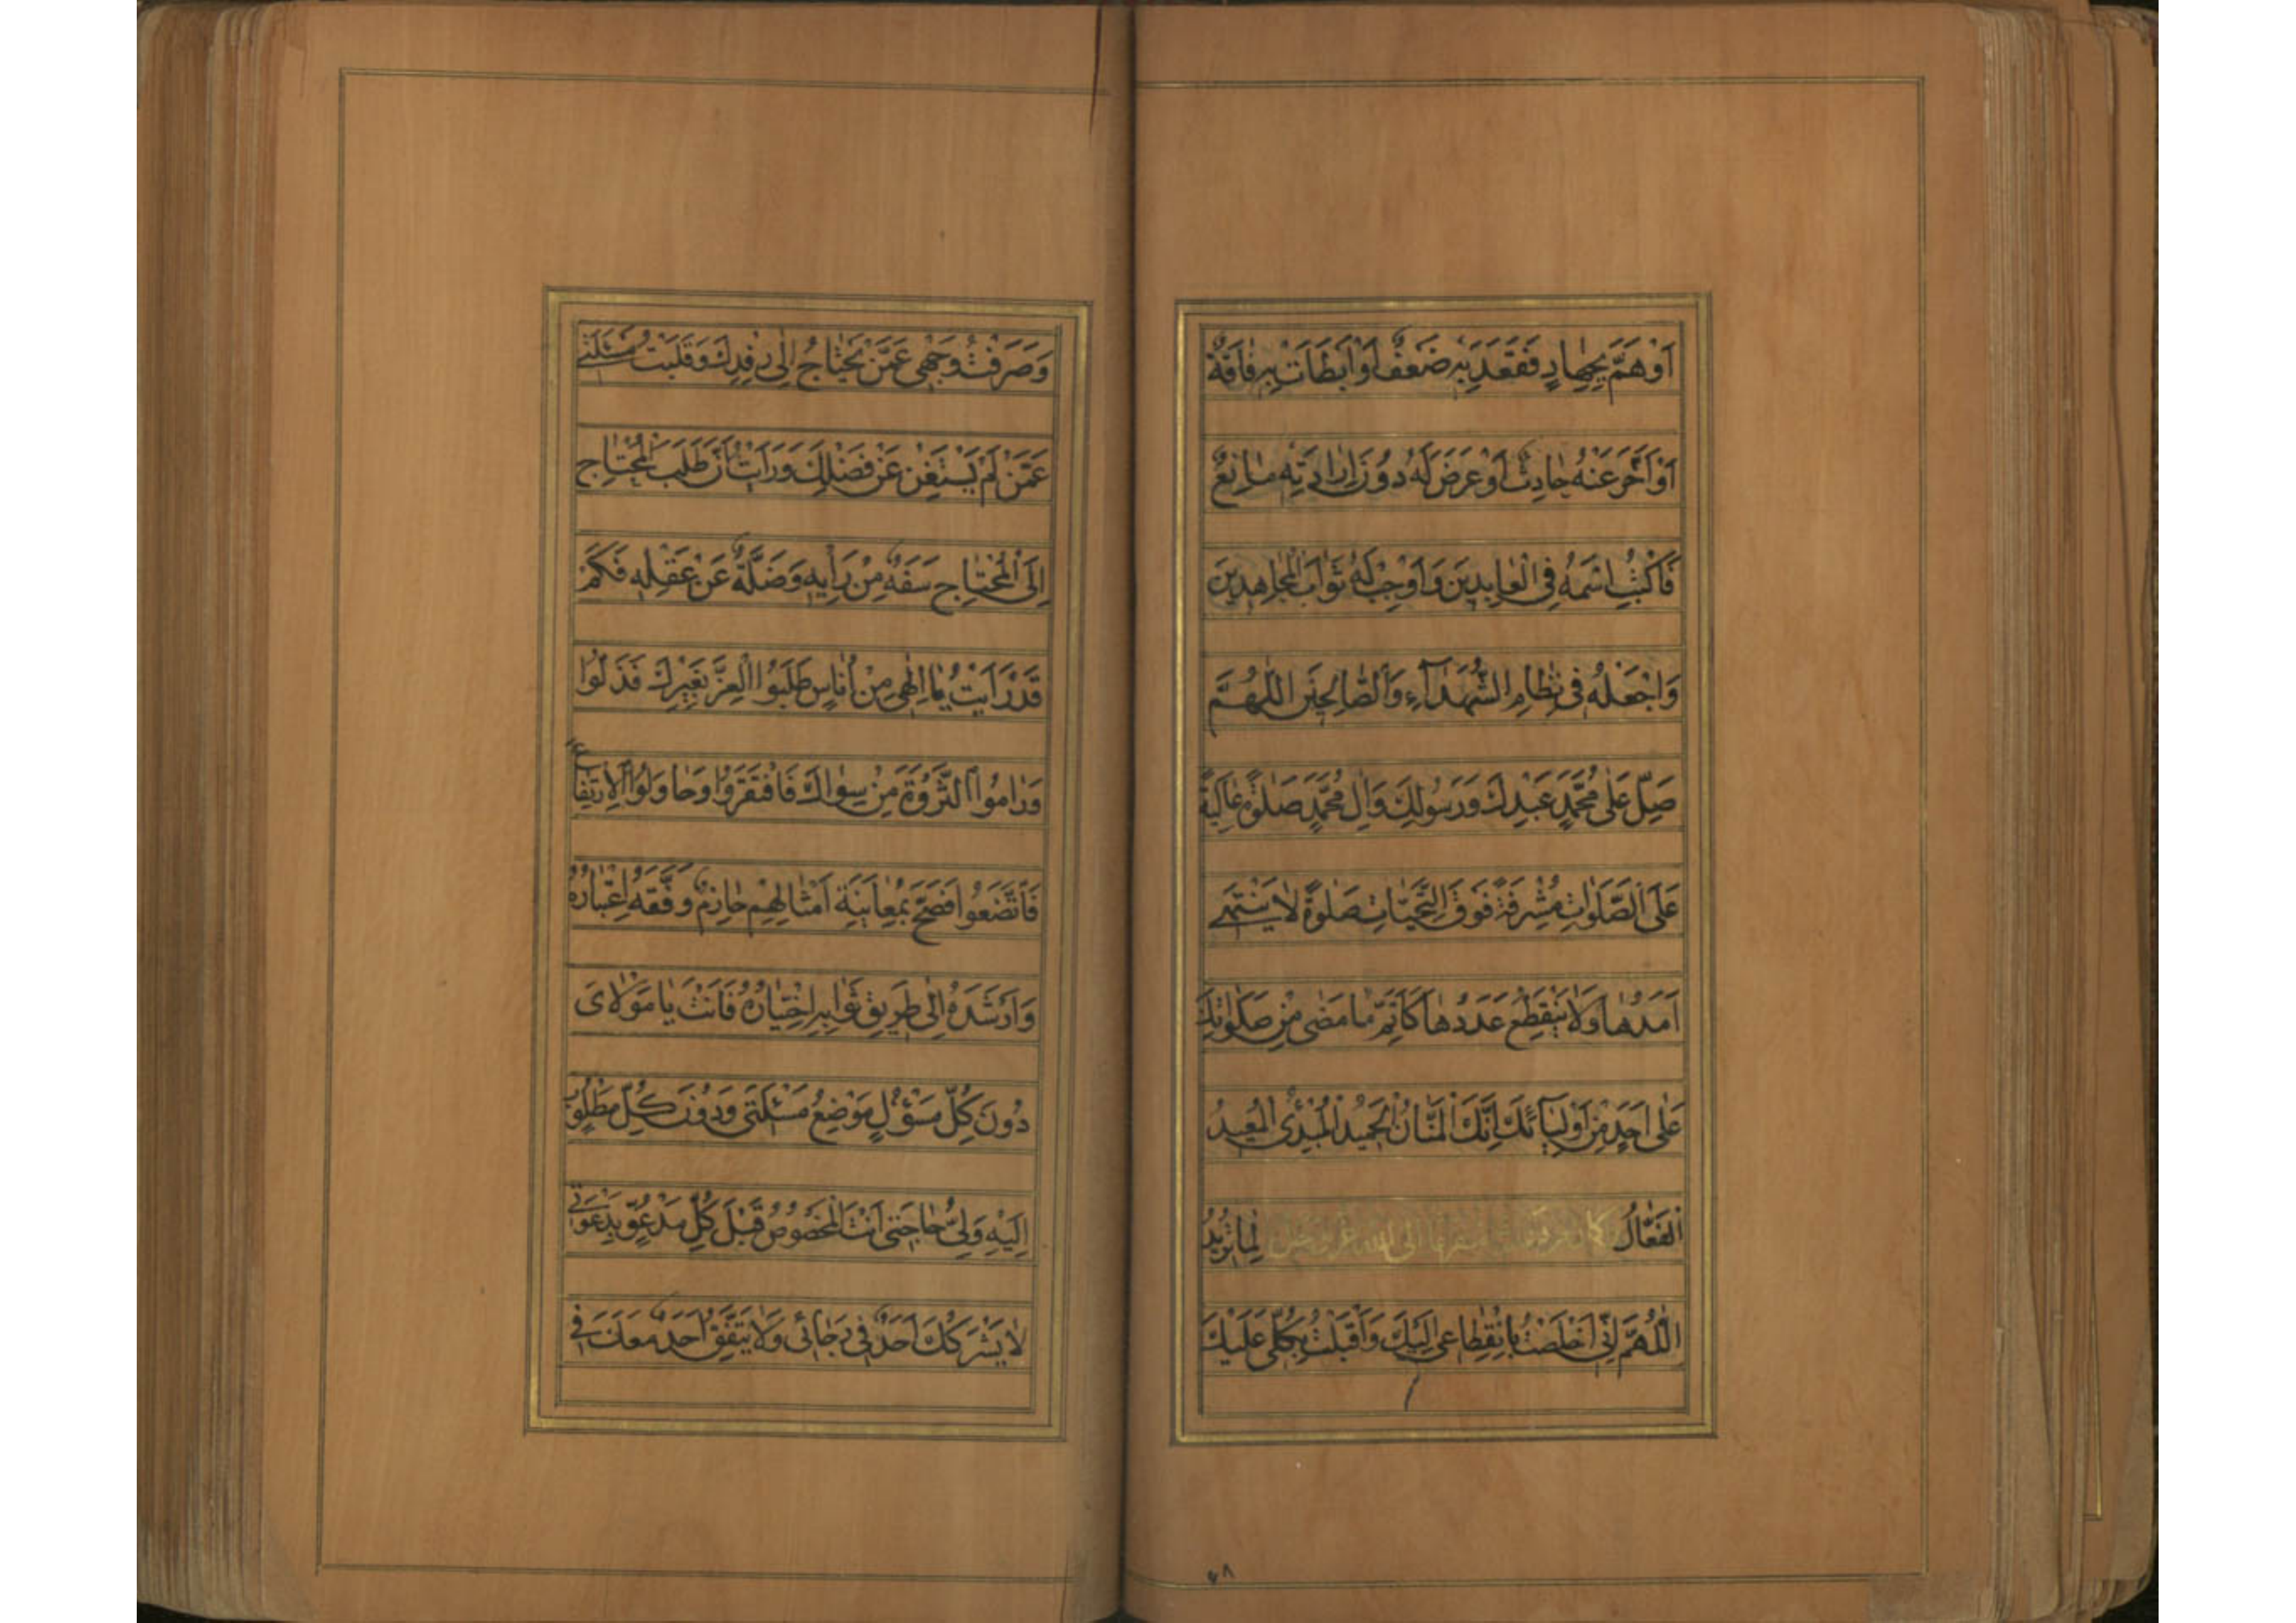 اَوْ هَمَّ بِجِهادٍ فَقَعَدَ بِهِ ضَعْفٌ اَوْ اَبْطَاَتْ بِهِ فاقَةٌ
اَوْ اَخَّرَ عَنْهُ حادِثٌ اَوْ عَرَضَ لَهُ دُونَ اِرادَتِهِ مانِعٌ
فَاكْتُبِ اسْمَهُ فِى الْعابِدينَ وَ اَوْجِبْ لَهُ ثَوابَ الْمُجاهِدينَ
وَاجْعَلْهُ فى نِظامِ الشُّهَدآءِ وَالصّالِحينَ اللّهُمَّ
صَلِّ عَلى مُحَمَّدٍ عَبْدِكَ وَ رَسُولِكَ وَ الِ مُحَمَّدٍ صَلوةً عالِيَةً
عَلَى الصَّلَواتِ مُشْرِفَةً فَوْقَ التَّحِيّاتِ صَلوةً لا يَنْتَهى
اَمَدُها وَلا يَنْقَطِعُ عَدَدُها كَاَتَمِّ ما مَضى مِنْ صَلَواتِكَ
عَلى اَحَدٍ مِنْ اَوْلِيآئِكَ اِنَّكَ الْمَنّانُ الْحَميدُ الْمُبْدِئُ الْمُعيدُ
اَلْفَعّالُ لِما تُريدُ
اَللّهُمَّ اِنّى اَخْلَصْتُ بِانْقِطاعى اِلَيْكَ وَ اَقْبَلْتُ بِكُلّى عَلَيْكَ
٤٨
وَ صَرَفْتُ وَجْهى عَمَّنْ يَحْتاجُ اِلى رِفْدِكَ وَ قَلَبْتُ مَسْئَلَتى
عَمَّنْ لَمْ يَسْتَغْنِ عَنْ فَضْلِكَ وَ رَاَيْتُ اَنَّ طَلَبَ الْمُحْتاجِ
اِلَى الْمُحْتاجِ سَفَهٌ مِنْ رَاْيِهِ وَ ضَلَّةٌ عَنْ عَقْلِهِ فَكَمْ
قَدْ رَاَيْتُ يا اِلهى مِنْ اُناسٍ طَلَبُوا الْعِزَّ بِغَيْرِكَ فَذَلُّوا
وَ رامُوا الثَّرْوَةَ مِنْ سِواكَ فَافْتَقَرُوا وَ حاوَلُوا الْاِرْتِفاعَ
فَاتَّضَعُوا فَصَحَّ بِمُعايَنَةِ اَمْثالِهِمْ حازِمٌ وَفَّقَهُ اعْتِبارُهُ
وَ اَرْشَدَهُ اِلى طَريقِ ثَوابِهِ اخْتِيارُهُ فَاَنْتَ يا مَوْلاىَ
دُونَ كُلِّ مَسْؤُلٍ مَوْضِعُ مَسْئَلَتى وَ دُونَ كُلِّ مَطْلُوبٍ
اِلَيْهِ وَلِىُّ حاجَتى اَنْتَ الْمَخْصُوصُ قَبْلَ كُلِّ مَدْعُوٍّ بِدَعْوَتى
لا يَشْرَكُكَ اَحَدٌ فى رَجائى وَلا يَتَّفِقُ اَحَدٌ مَعَكَ فى